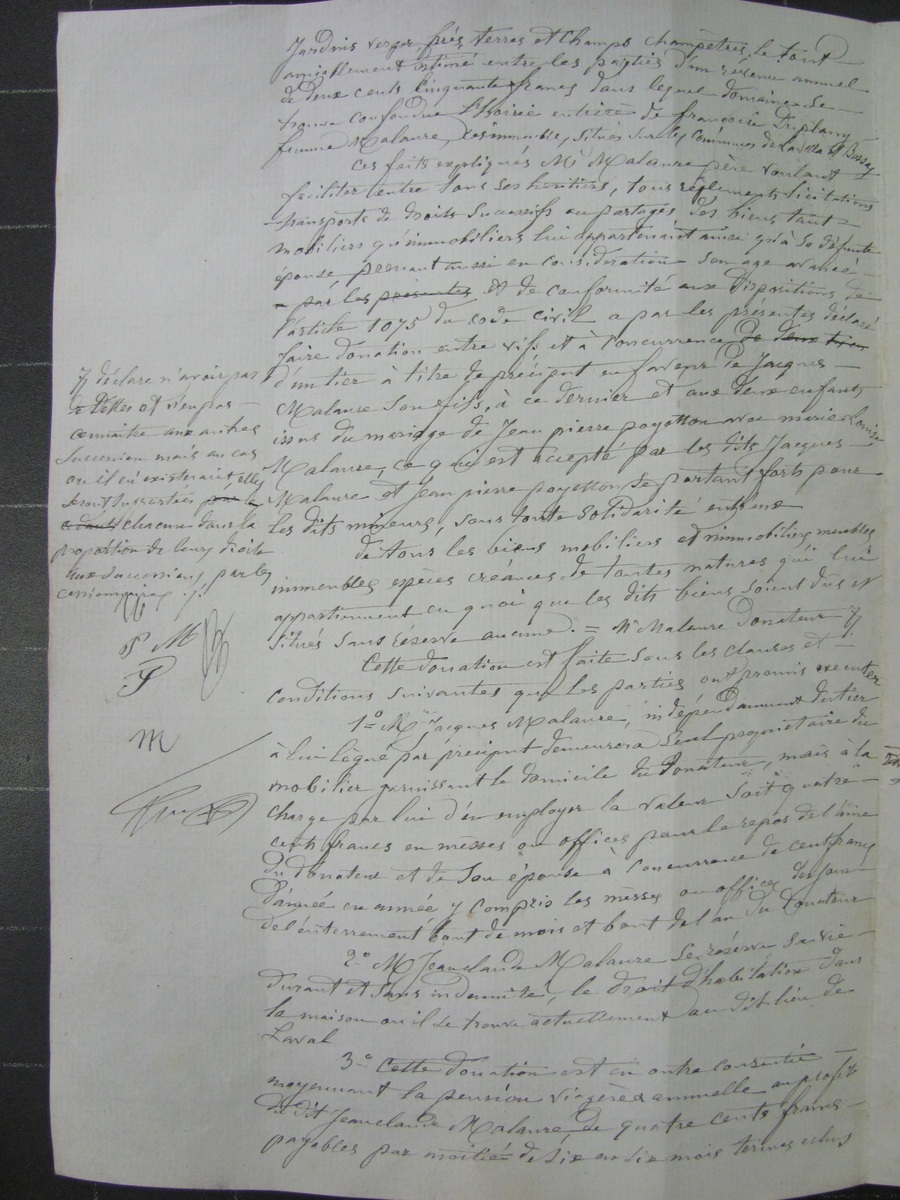 Jardins verger, prés, terres et champs champêtres, le tout
amiablement estimé entre les parties d'un revenu annuel
de deux cents cinquante francs dans lequel domaine se
trouve confondue l'hoirie entière de françoise Duplany
femme Malaure, Les immeubles, situés sur les communes de
ces faits expliqués Mr Malaure père voulant
faciliter entre tous ses héritiers, tous règlements licitations
transports de droits successifs ou partages des biens tant
mobiliers qu'immobiliers lui appartenant ainsi qu'à sa défunte
épouse prenant aussi en considération son age avancé
a par les présentes Et de conformité aux dispositions de
l'article 1075 du code civil a par les présentes déclaré
faire donation entre vifs et à concurrence de deux tiers
d'un tier à titre de préciput en faveur de Jacques
Malaure son fils, à ce dernier et aux deux enfants
issus du mariage de Jean pierre poyetton avec marie Louise
Malaure, ce qui est accepté par les dits Jacques
Malaure et Jean pierre poyetton se portant forts pour
les dits mineurs, sans toute solidarité entr'eux
de tous les biens mobiliers et immobiliers meubles
immeubles espèces créances de toutes natures qui lui
appartiennent en quoi que les dits biens soient dus et
situés sans réserve aucune. = Mr Malaure Donateur
Cette donation est faite sous les clauses et
conditions suivantes que les parties ont promis exécuter
1º Mr Jacques Malaure, indépendamment du tier
à lui légué par préciput demeurera seul propriétaire du
mobilier garnissant le domicile du Donateur, mais à la
charge par lui d'en employer la valeur soit quatre
cents francs en messes ou offices pour le repos de l'âme
du donateur et de son épouse à concurrence de cent francs
d'année en année y compris les messes ou offices du jour
de l'enterrement bout de mois et bout de l'an du Donateur
2º M Jean claude Malaure se réserve sa vie
durant et sans indemnité, le droit d'habitation dans
la maison où il se trouve actuellement au dit lieu de
Laval
3º Cette donation est en outre consentie
moyennant la pension viagère annuelle au profit
du dit Jean claude Malaure de quatre cents francs
payables par moitié de six en six mois termes echus
déclare n'avoir pas
de dettes et n'en pas
connaitre aux autres
succession mais au cas
où il en existerait, elles
seront supportées par
chacune dans la
proportion de leurs droits
aux successions, par les
P M
P
m